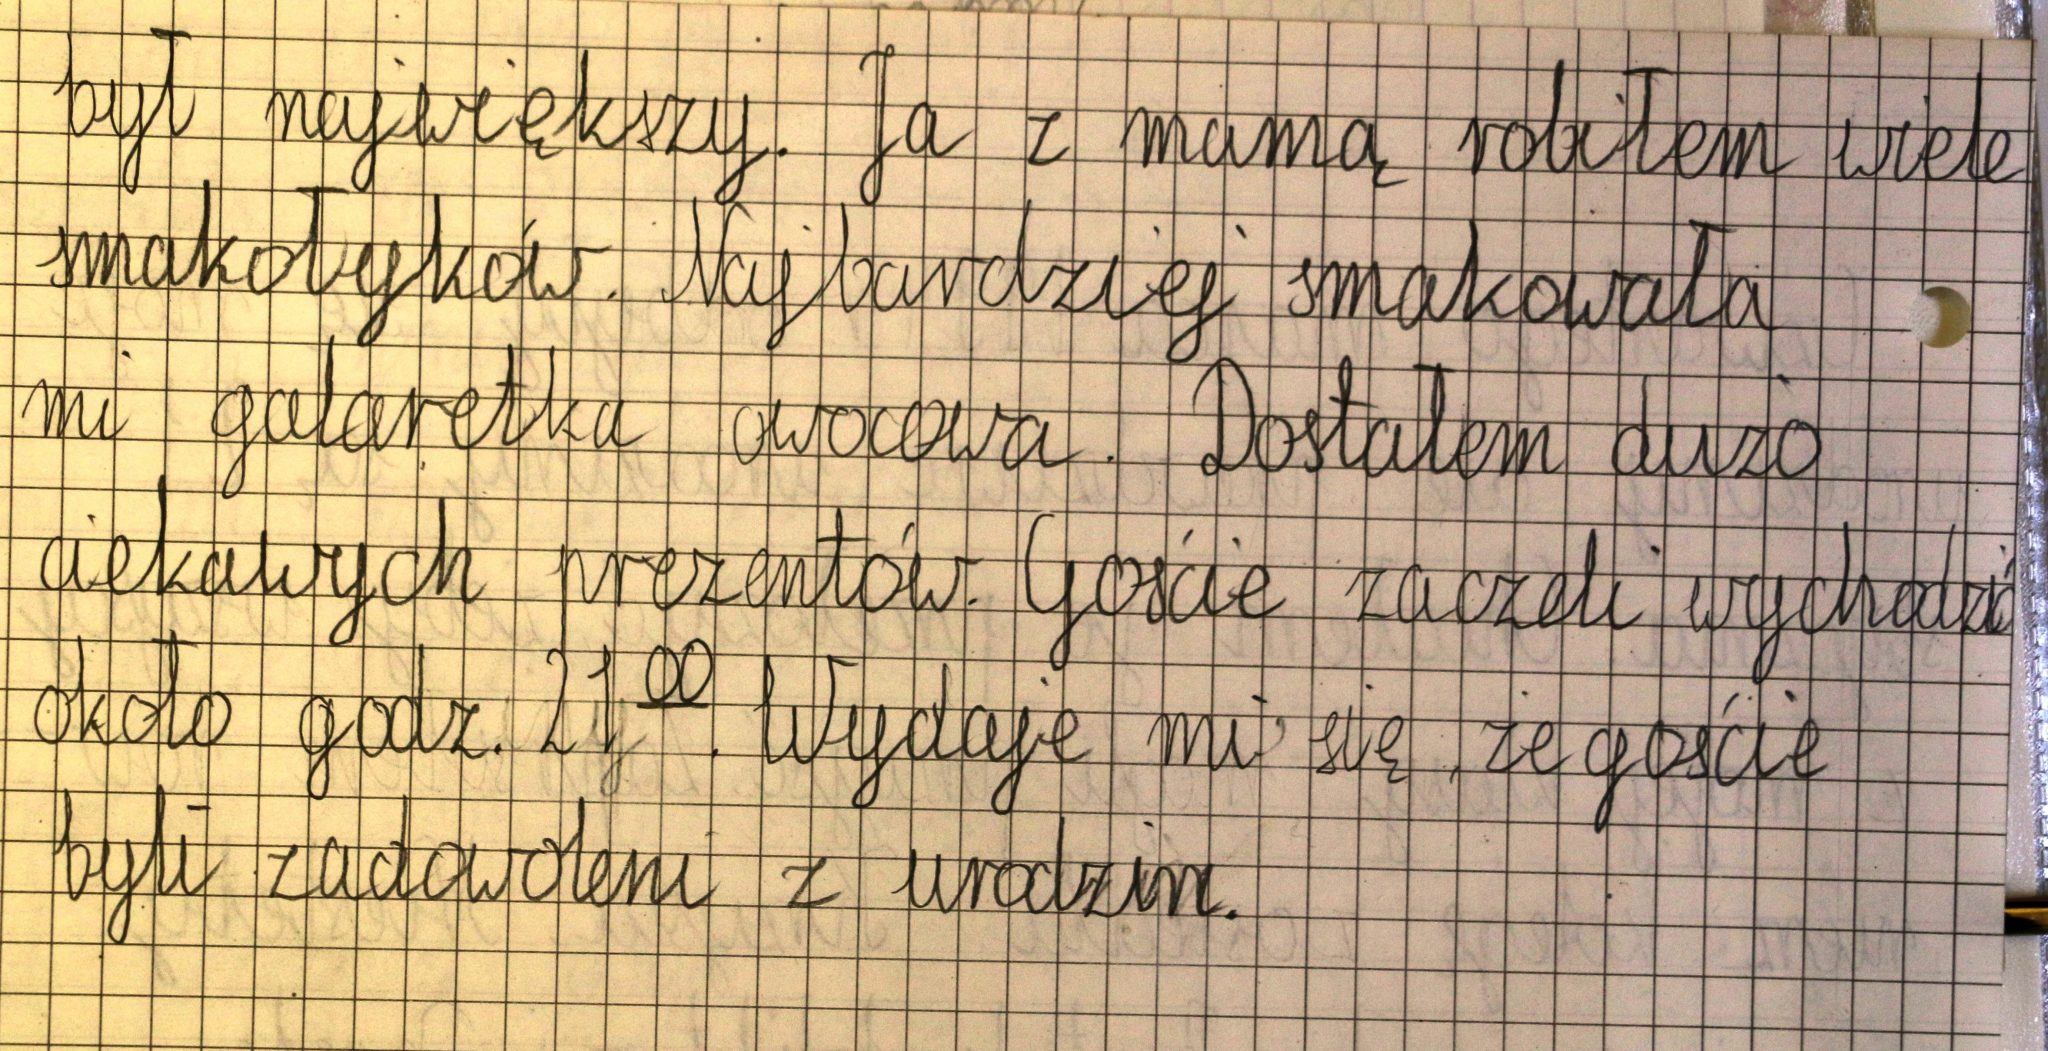 był największy. Ja z mamą robiłem wiele
smakołyków. Najbardziej smakowała
mi galaretka owocowa. Dostałem dużo
ciekawych prezentów. Goście zaczeli wychodzić
około godz. 21 00. Wydaje mi się, że goście
byli zadowoleni z urodzin.